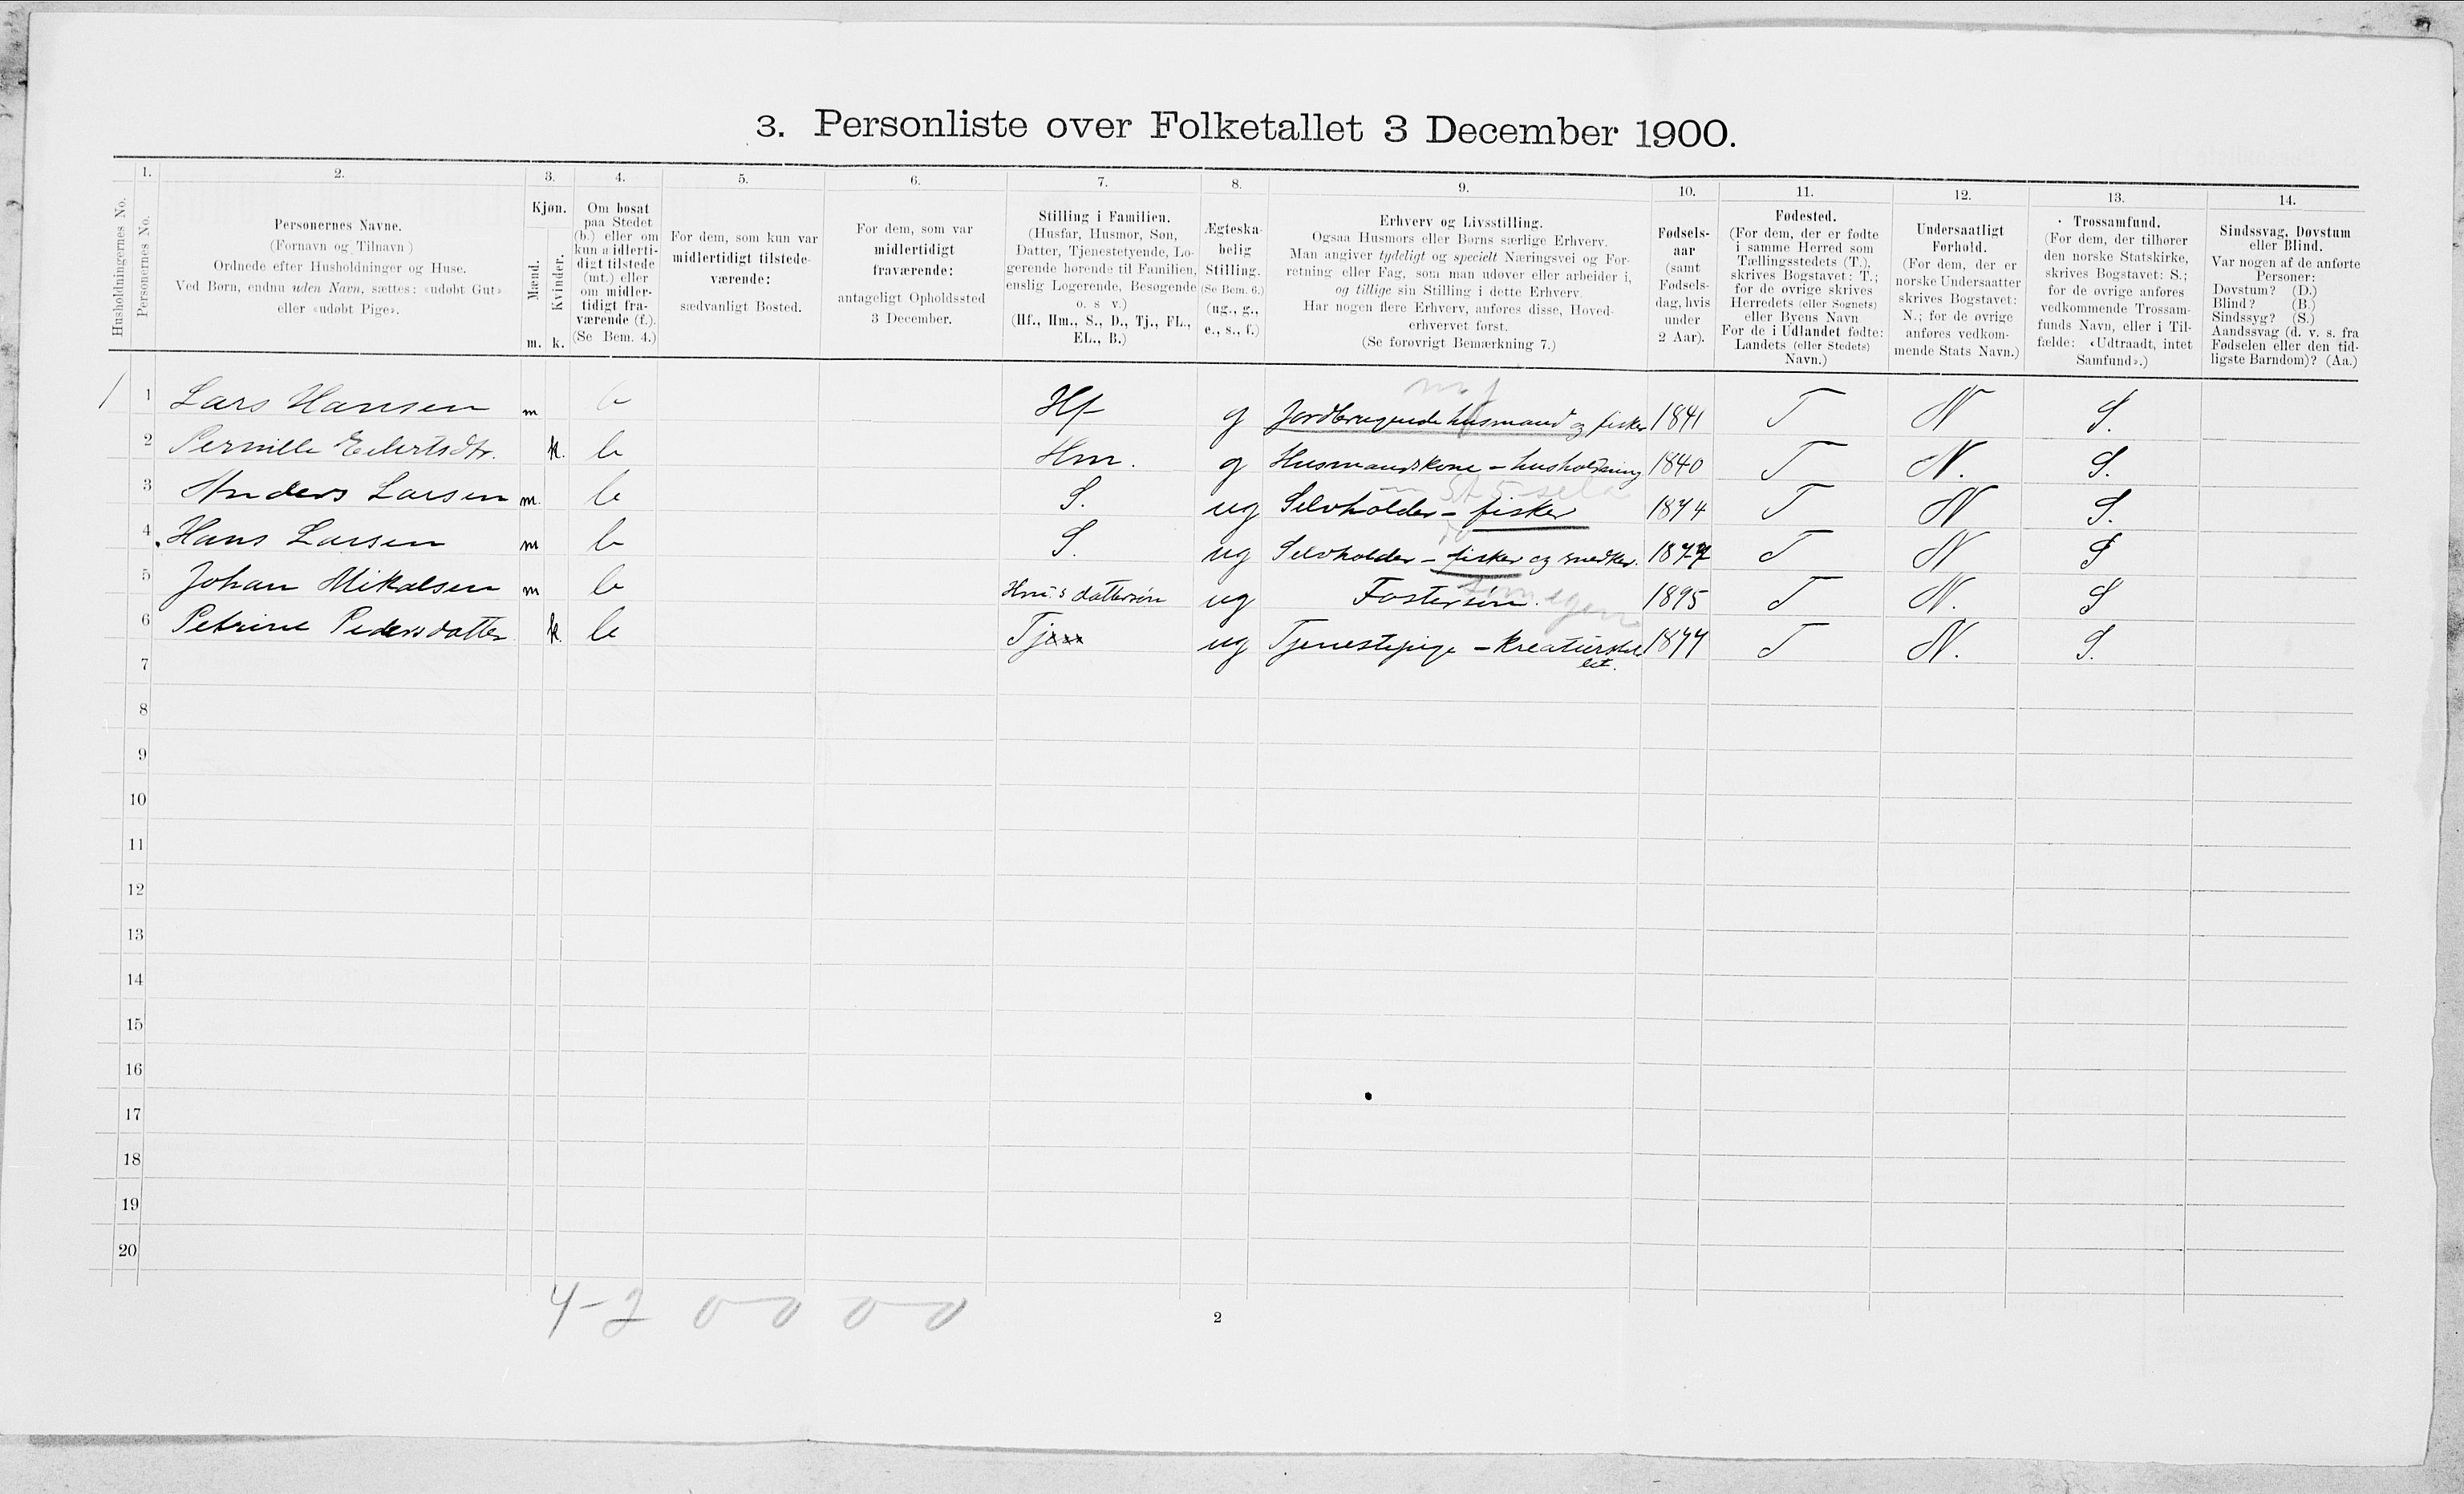 3. Personliste over Folketallet 3 December 1900.
Husholdningernes No.
1.
Personernes No.
2.
Personernes Navne.
(Fornavn og Tilnavn)
Ordnede efter Husholdninger og Huse.
Ved Børn, endnu uden Navn, sættes: «udøbt Gut»
eller «udøbt Pige».
3.
Kjøn.
Mænd.
Kvinder.
m. k.
4.
Om bosat
paa Stedet
(b.) eller om
kun midlerti-
digt tilstede
(mt.) eller
om midler-
tidigt fra-
værende (f.).
(Se Bem. 4.)
5.
For dem, som kun var
midlertidigt tilstede-
værende:
sædvanligt Bosted.
6.
For dem, som var
midlertidigt
fraværende:
antageligt Opholdssted
3 December.
7.
Stilling i Familien.
(Husfar, Husmor, Søn,
Datter, Tjenestetyende, Lo-
gerende hørende til Familien,
enslig Logerende, Besøgende
o. s v.)
(Hf., Hm., S., D., Tj., FL.,
EL., B.)
8.
Ægteska-
belig
Stilling.
(Se Bem. 6.)
(ug., g.,
e., s., f.)
9.
Erhverv og Livsstilling.
Ogsaa Husmors eller Børns særlige Erhverv.
Man angiver tydeligt og specielt Næringsvei og For-
retning eller Fag, som man udøver eller arbeider i,
og tillige sin Stilling i dette Erhverv.
Har nogen flere Erhverv, anføres disse, Hoved-
erhvervet først.
(Se forøvrigt Bemærkning 7.)
10.
Fødsels-
aar
(samt
Fødsels-
dag, hvis
under
2 Aar).
11.
Fødested.
(For dem, der er fødte
i samme Herred som
Tællingsstedets (T.),
skrives Bogstavet: T.;
for de øvrige skrives
Herredets (eller Sognets)
eller Byens Navn
For de i Udlandet fødte:
Landets (eller Stedets)
Navn.)
12.
Undersaatligt
Forhold.
(For dem, der er
norske Undersaatter
skrives Bogstavet:
N.; for de øvrige
anføres vedkom-
mende Stats Navn.)
13.
Trossamfund.
(For dem, der tilhører
den norske Statskirke,
skrives Bogstavet: S.;
for de øvrige anføres
vedkommende Trossam-
funds Navn, eller i Til-
fælde: «Udtraadt, intet
Samfund».)
14.
Sindssvag, Døvstum
eller Blind.
Var nogen af de anførte
Personer:
Døvstum? (D.)
Blind? (B.)
Sindssyg? (S.)
Aandssvag (d. v. s. fra
Fødselen eller den tid-
ligste Barndom)? (Aa.)
1 1 Lars Hansen m b Hf g Jordbrugende husmand og fisker 1841 T N S.
2 Pernille Eilertsdtr. k. b Hm. g Husmandskone - husholdning 1840 T N. S.
3 Anders Larsen m. b S. ug Selvholder - fisker 1874 T N S.
4 Hans Larsen m b S. ug Selvholder - fisker og snedker. 1877 T N S
5 Johan Mikalsen m b Hm's dattersøn ug Fostersøn. 1895 T N. S
6 Petrine Pedersdatter k. b Tj ug Tjenestepige - kreaturstel 1877 T N. S.
let.
7
8
9
10
11
12
13
14
15
16
17
18
19
20
4-2 0 0 0 0
2